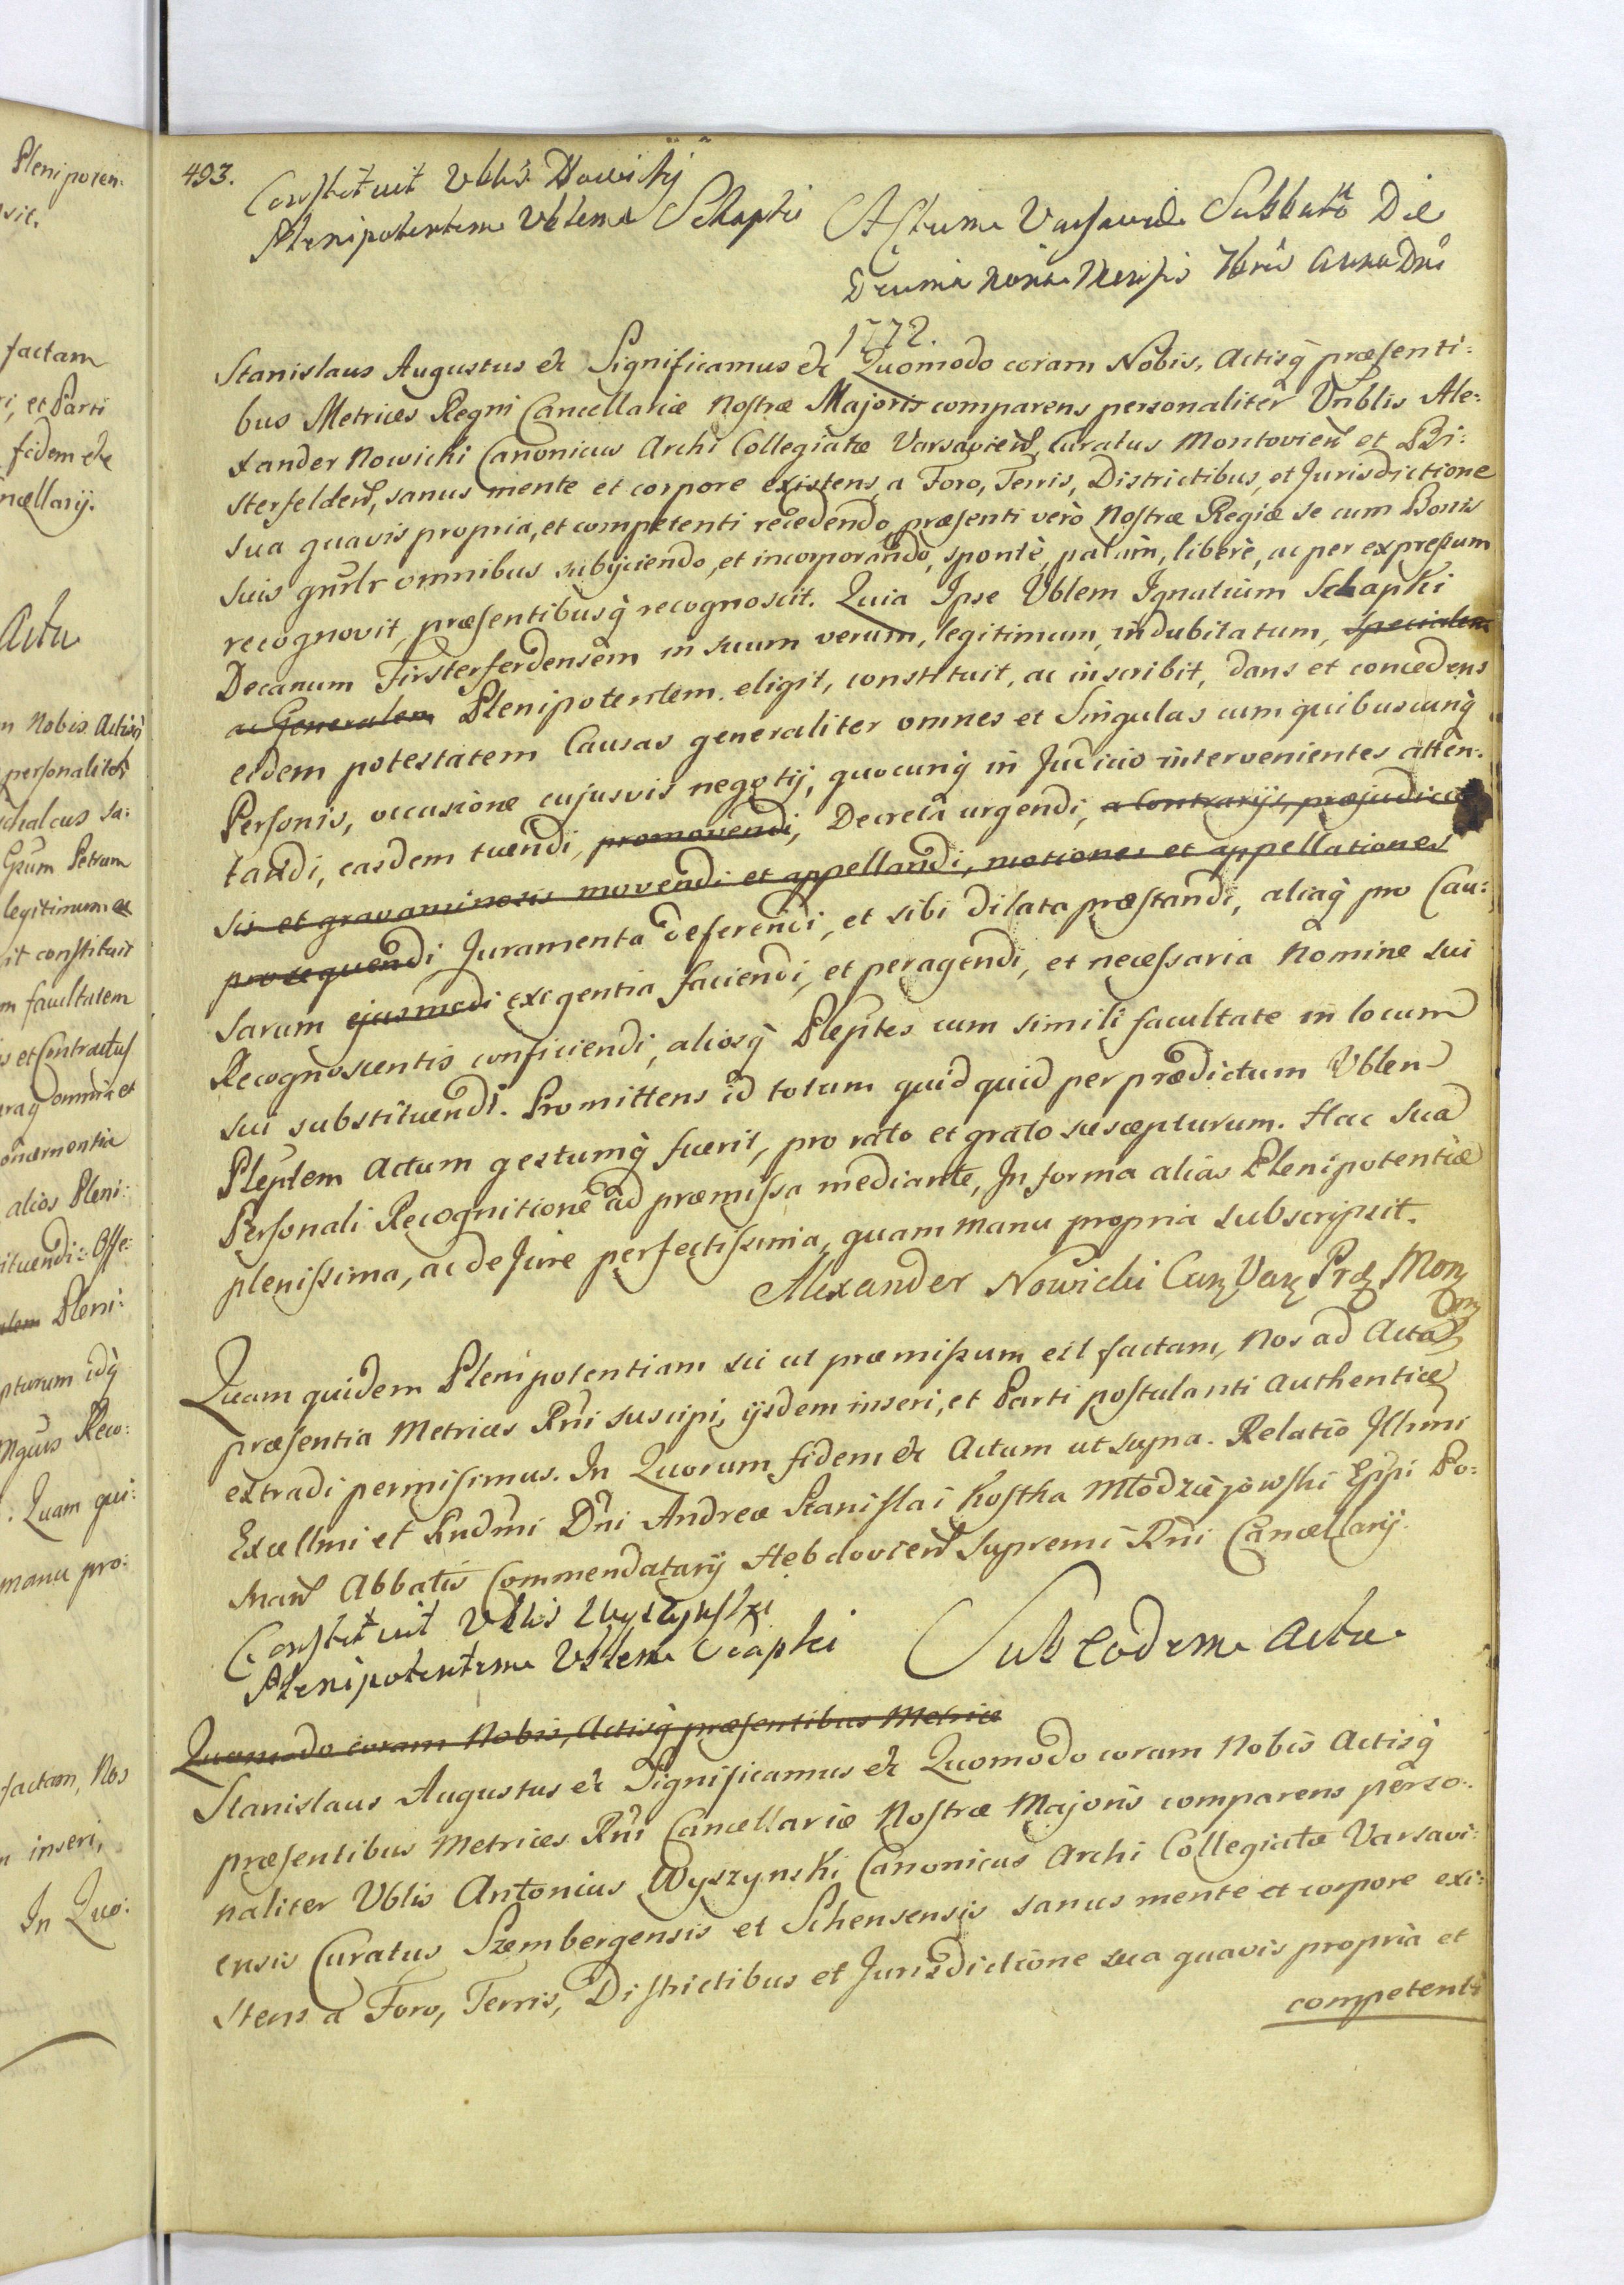 Pleni poten:
vit.
factam
i, et Parti
fidem etc
ncellarij.
Actu
n Nobis Actisq̃
personaliter
chalcus Sa:
Gsum Petrum
legitimum ac
it constituit
m facultatem
s et Contractus
omnia et
alios Pleni:
ituendi: Offe:
Pleni:
pturum idq̃
Reco:
: Quam qui:
manu pro:
factam, Nos
n inseri,
In Quo:
493.
Constituit Vblis Nowickj
Plenipotentem Vblem Schapki
Actum Varsaviæ Sabbatō Die
Decima nona Mensis 7bris Anno Dñi
1772.
Stanislaus Augustus etc Significamus etc Quomodo coram Nobis, Actisq̃ præsenti:
bus Metrices Regni Cancellariæ Nostræ Majoris comparens personaliter Vnblis Ale:
xander Nowicki Canonicus Archi Collegiatæ Varsavień, Curatus Montovień et Bi:
sterfeldeń, sanus mente et corpore existens, a Foro, Terris, Districtibus, et Jurisdictione
sua quavis propria, et competenti recedendo, præsenti verò Nostræ Regiæ se cum Bonis
suis gnrlr omnibus subijciendo, et incorporando, spontè, palàm, liberè, ac per expressum
recognovit, præsentibusq̃ recognoscit. Quia Ipse Vblem Ignatium Schapki
Decanum Firsterferdensem in suum verum, legitimum, indubitatum, specialem
ac Generalem Plenipotentem eligit, constituit, ac inscribit, dans et concedens
eidem potestatem Causas generaliter omnes et Singulas cum quibuscunq̃
Personis, occasione cujusvis negotij, quocunq̃ in Judicio intervenientes atten:
tandi, easdem tuendi, promovendi, Decreta urgendi, a Contrarijs, præjudicio
sis et gravaminosis movendi et appellandi, motiones et appellationes
prosequendi Juramenta deferendi, et sibi dilata præstandi, aliaq̃ pro Cau:
sarum ejusmodi exigentia faciendi, et peragendi, et necessaria Nomine sui
Recognoscentis conficiendi, aliosq̃ Pleptes cum simili facultate in locum
sui substituendi. Promittens id totum quidquid per prædictum Vblem
Pleptem Actum gestumq̃ fuerit, pro rato et grato suscepturum. Hac Sua
Personali Recognitione ad præmissa mediante, In forma alias Plenipotentiæ
plenissima, ac de Jure perfectissima, quam manu propria subscripsit.
Alexander Nowicki Can Var Præ Mon
Quam quidem Plenipotentiam sic ut præmissum est factam, Nos ad Acta
præsentia Metrices Rñi suscipi, ijsdem inseri, et Parti postulanti authenticè
extradi permisimus. In Quorum fidem etc Actum ut supra. Relatio Illmi
Excellmi et Rndmi Dñi Andreæ Stanislai Kostka Młodziejowski Eppi Po:
snań Abbatis Commendatarij Hebdovień Supremi Rñi Cancellarij.
Constituit Vblis Wyszynski
Plenipotentem Vblem Czapki
Sub eodem Actu.
Quomodo coram Nobis, Actisq̃ præsentibus Metrice
Stanislaus Augustus etc Significamus etc Quomodo coram Nobis Actisq̃
præsentibus Metrices Rñi Cancellariæ Nostræ Majoris comparens perso:
naliter Vblis Antonius Wyszynski Canonicus Archi Collegiatæ Varsavi:
ensis Curatus Szembergensis et Schensensis sanus mente et corpore exi:
stens a Foro, Terris, Districtibus et Jurisdictione sua quavis propria et
competenti